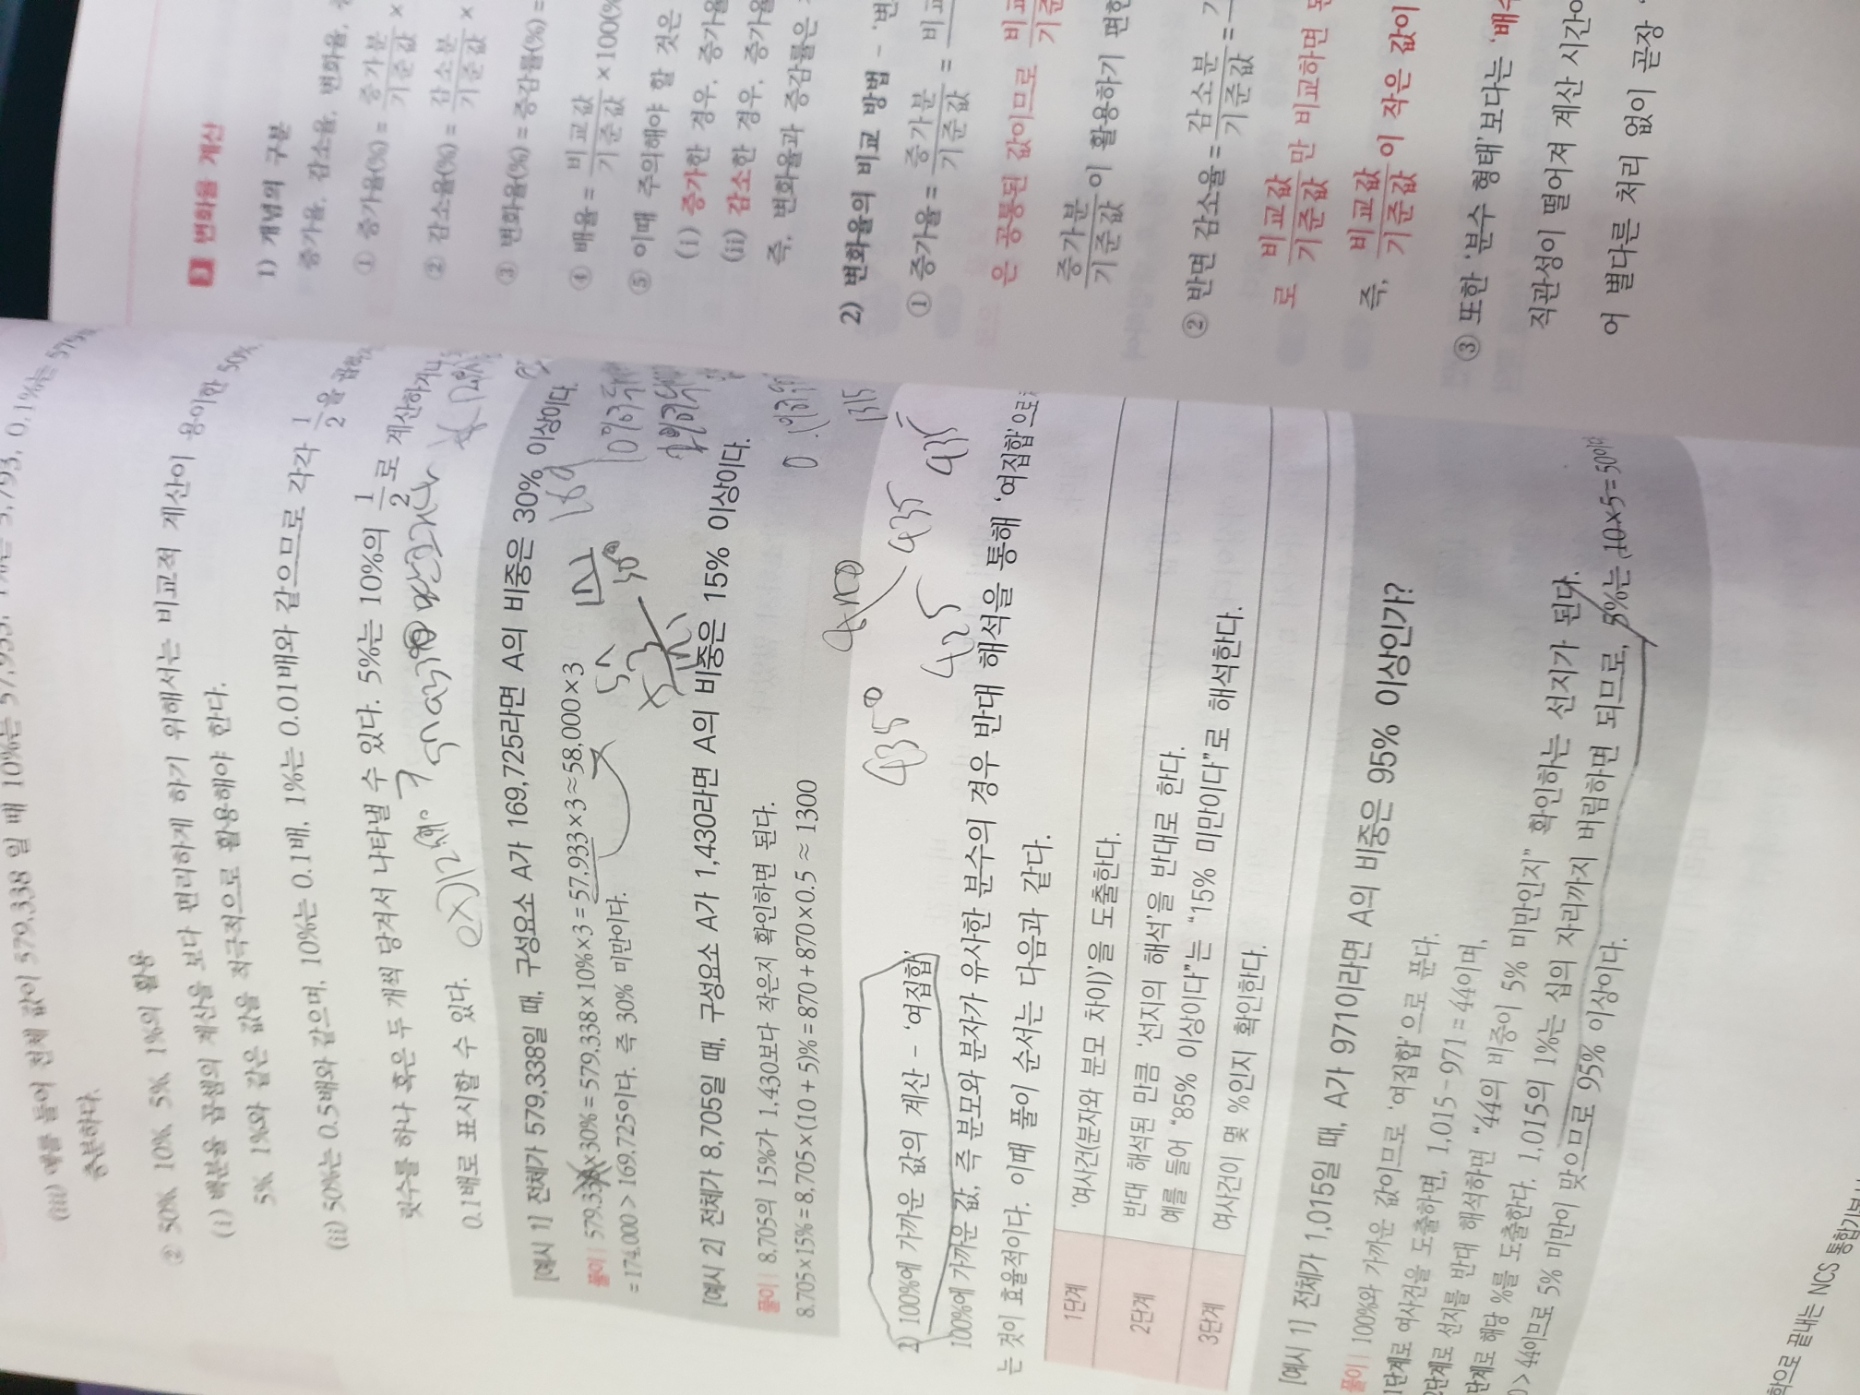 (iii) 예를 들어 전체 값이 579,338 일 때 10%는 57,933, 1%는 5,793, 0.1%는
충분하다.
② 50%, 10%, 5%, 1%의 활용
(i) 백분율 곱셈의 계산을 보다 편리하게 하기 위해서는 비교적 계산이 용이한 50%,
5%, 1%와 같은 값을 적극적으로 활용해야 한다.
(ii) 50%는 0.5배와 같으며, 10%는 0.1배, 1%는 0.01배와 같으므로 각각 1/2을
릿수를 하나 혹은 두 개씩 당겨서 나타낼 수 있다. 5%는 10%의 1/2로 계산하거나,
0.1배로 표시할 수 있다.
[예시 1] 전체가 579,338일 때, 구성요소 A가 169,725라면 A의 비중은 30% 이상이다.
풀이 | 579,338×30% = 579,338×10%×3 = 57,933×3≈58,000×3
= 174,000 > 169,725이다. 즉 30% 미만이다.
[예시 2] 전체가 8,705일 때, 구성요소 A가 1,430라면 A의 비중은 15% 이상이다.
풀이 | 8,705의 15%가 1,430보다 작은지 확인하면 된다.
8,705×15% = 8,705×(10+5)% = 870+870×0.5 ≈ 1300
1315
4350
435
425
435
2) 100%에 가까운 값의 계산 - '여집합'
100%에 가까운 값, 즉 분모와 분자가 유사한 분수의 경우 반대 해석을 통해 '여집합'으로
는 것이 효율적이다. 이때 풀이 순서는 다음과 같다.
1단계 '여사건(분자와 분모 차이)'을 도출한다.
2단계 반대 해석된 만큼 '선지의 해석'을 반대로 한다.
예를 들어 "85% 이상이다"는 "15% 미만이다"로 해석한다.
3단계 여사건이 몇 %인지 확인한다.
[예시 1] 전체가 1,015일 때, A가 971이라면 A의 비중은 95% 이상인가?
풀이 | 100%와 가까운 값이므로 '여집합'으로 푼다.
1단계로 여사건을 도출하면, 1,015-971=44이며,
2단계로 선지를 반대 해석하면 "44의 비중이 5% 미만인지" 확인하는 선지가 된다.
단계로 해당 %를 도출한다. 1,015의 1%는 십의 자리까지 버림하면 되므로, 5%는 10×5=50이며
> 44이므로 5% 미만이 맞으므로 95% 이상이다.
학으로 끝내는 NCS 통합기본서
3 변화율 계산
1) 개념의 구분
증가율, 감소율, 변화율,
① 증가율(%) = 증가분/기준값 ×
② 감소율(%) = 감소분/기준값 ×
③ 변화율(%) = 증감률(%) =
④ 배율 = 비교값/기준값 × 100%
⑤ 이때 주의해야 할 것은
(i) 증가한 경우, 증가율
(ii) 감소한 경우, 증가율
즉, 변화율과 증감률은
2) 변화율의 비교 방법 -
① 증가율 = 증가분/기준값 =
은 공통된 값이므로
증가분/기준값이 활용하기 편한
② 반면 감소율 = 감소분/기준값 =
로 비교값/기준값만 비교하면
즉, 비교값/기준값이 작은 값이
③ 또한 '분수 형태'보다는 '배수
직관성이 떨어져 계산 시간이
어 별다른 처리 없이 곧장